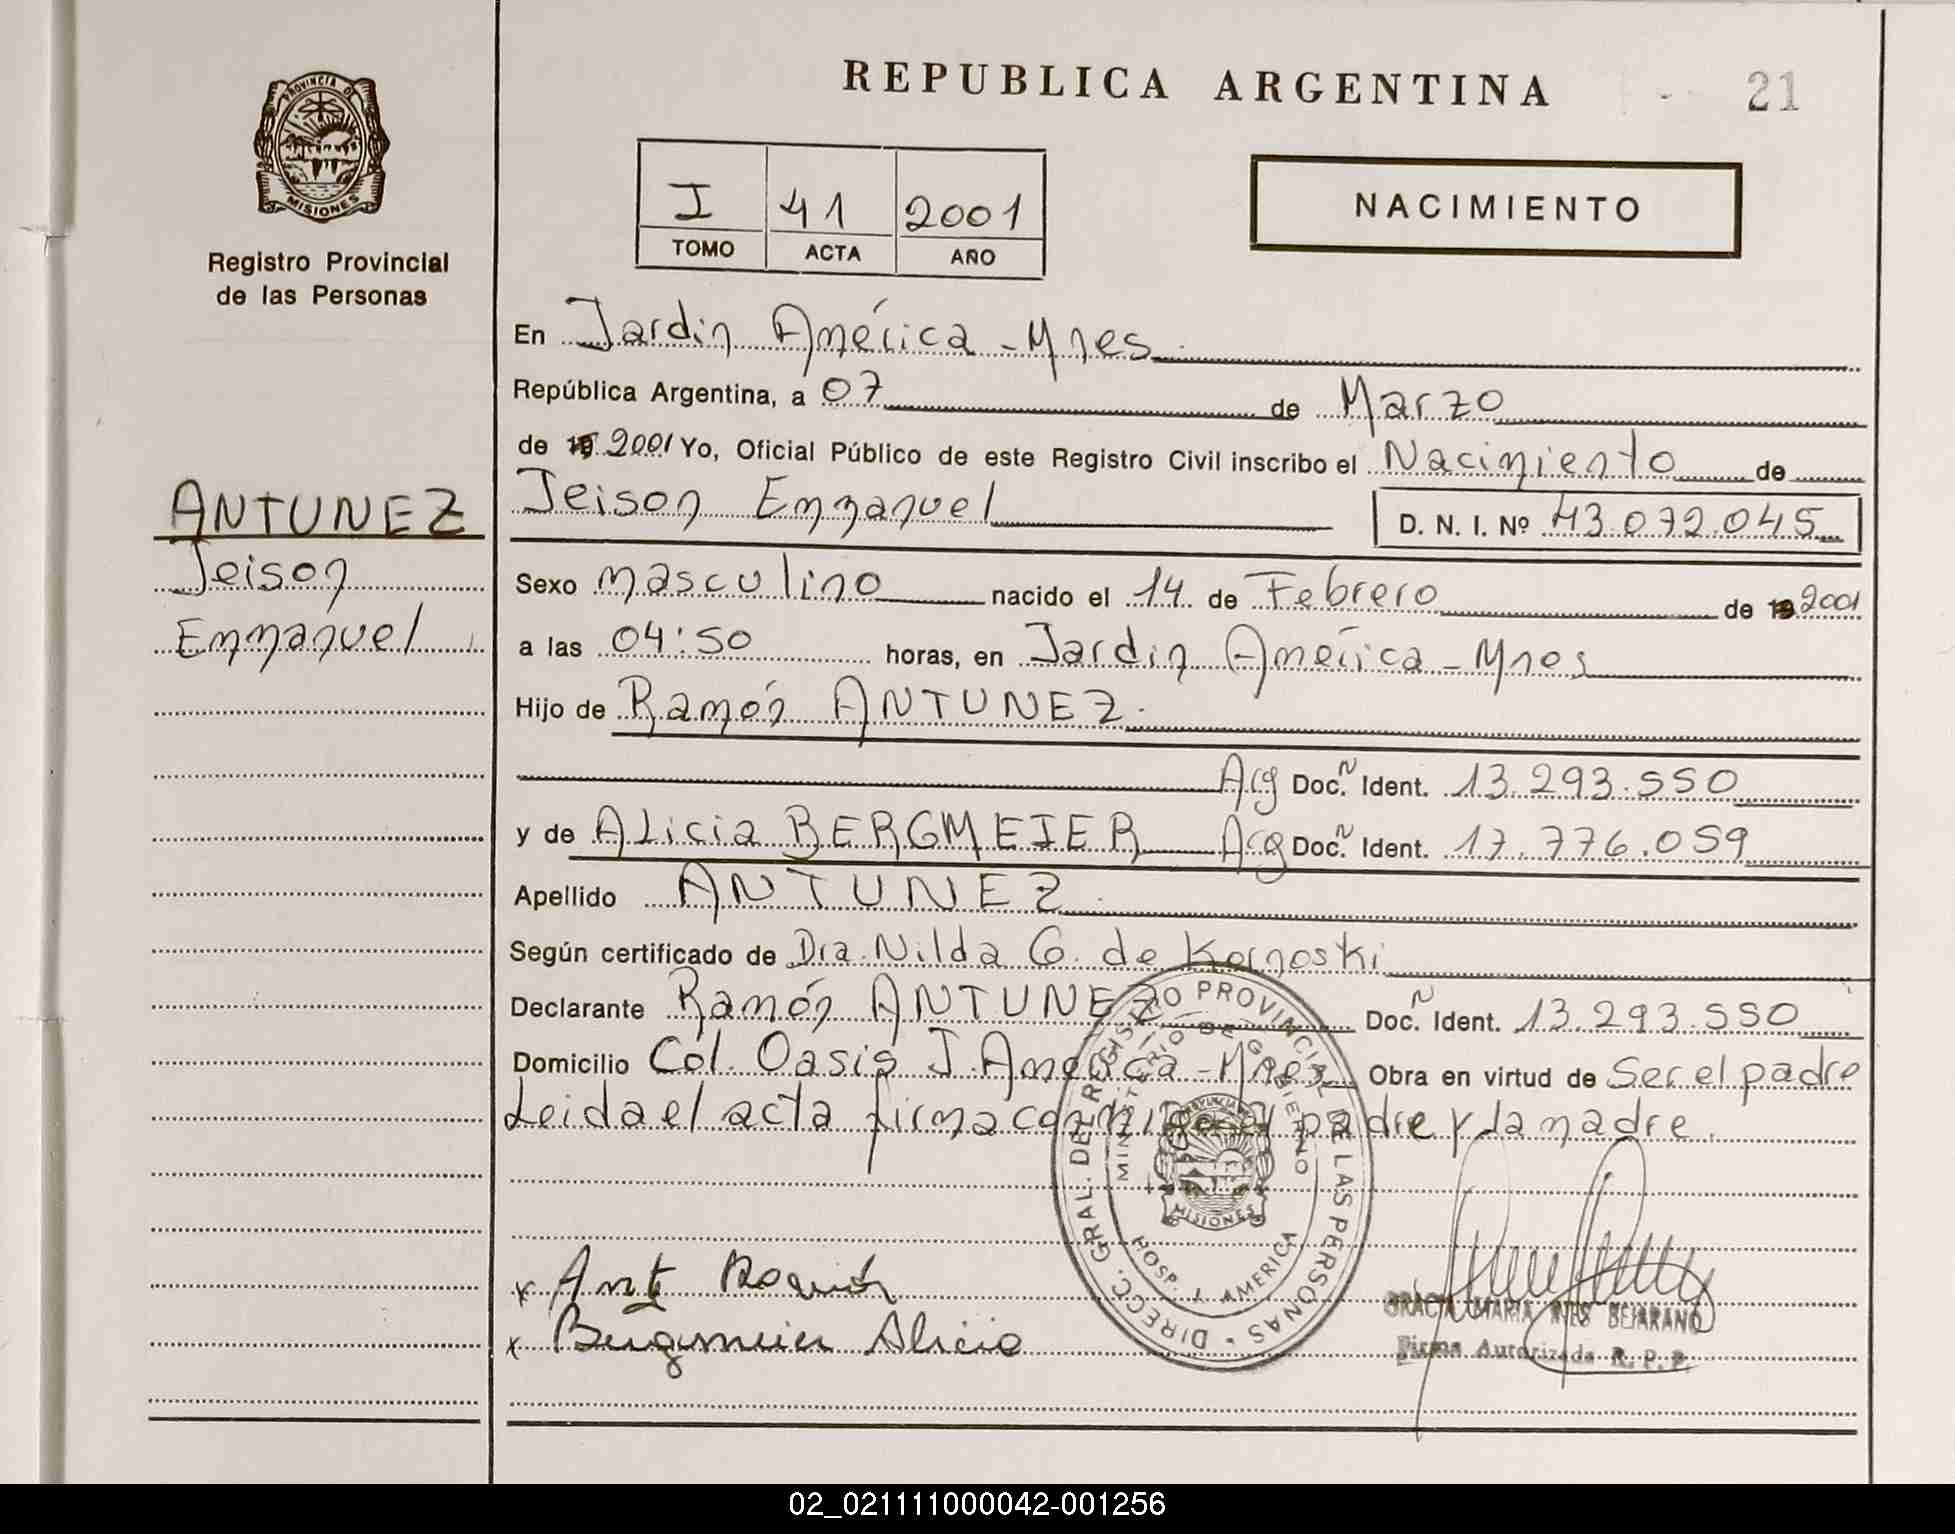 REPUBLICA ARGENTINA
21
PROVINCIA DE
MISIONES
Registro Provincial
de las Personas
I 41 2001
TOMO ACTA AÑO
NACIMIENTO
En Jardin América - Mnes
República Argentina, a 07 de Marzo
de 19 2001 Yo, Oficial Público de este Registro Civil inscribo el Nacimiento de
Jeison Emmanuel D. N. I. Nº 43.072.045
ANTUNEZ
Jeison
Emmanuel
Sexo masculino nacido el 14 de Febrero de 19 2001
a las 04:50 horas, en Jardin América - Mnes
Hijo de Ramón ANTUNEZ
Arg Doc. N Ident. 13.293.550
y de ALicia BERGMEIER Arg Doc. N Ident. 17.776.059
Apellido ANTUNEZ
Según certificado de Dra. Nilda G. de Kornoski
Declarante Ramón ANTUNEZ Doc. N Ident. 13.293.550
Domicilio Col. Oasis J. América - Mnes Obra en virtud de Ser el padre
Leida el acta firma conmigo el padre y la madre.
DIRECC. GRAL. DEL REGISTRO PROVINCIAL DE LAS PERSONAS
MINISTERIO DE GOBIERNO
PROVINCIA DE
MISIONES
HOSP. J. AMERICA
x Ant Ramón
x Bergmeier Alicia
GRACIA MARIA INES BEJARANO
Firma Autorizada R. P. P.
02_021111000042-001256